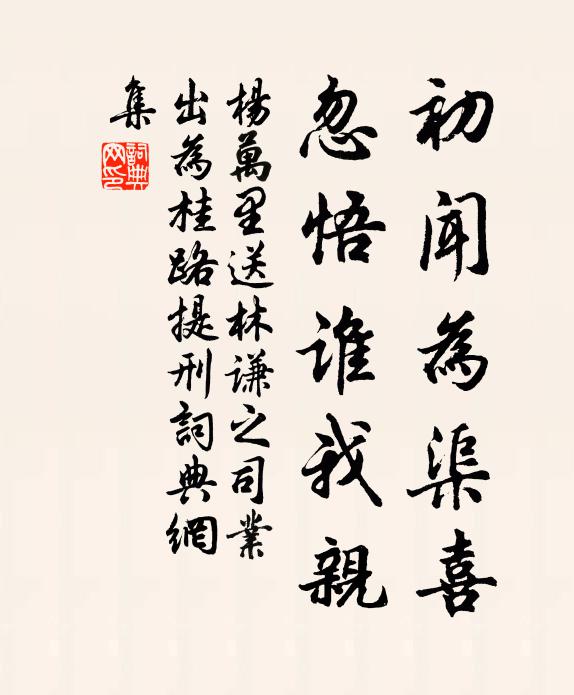 初聞為渠喜
忽悟誰我親
楊萬里送林謙之司業
出為桂路提刑詞典網
集
詞典
网印